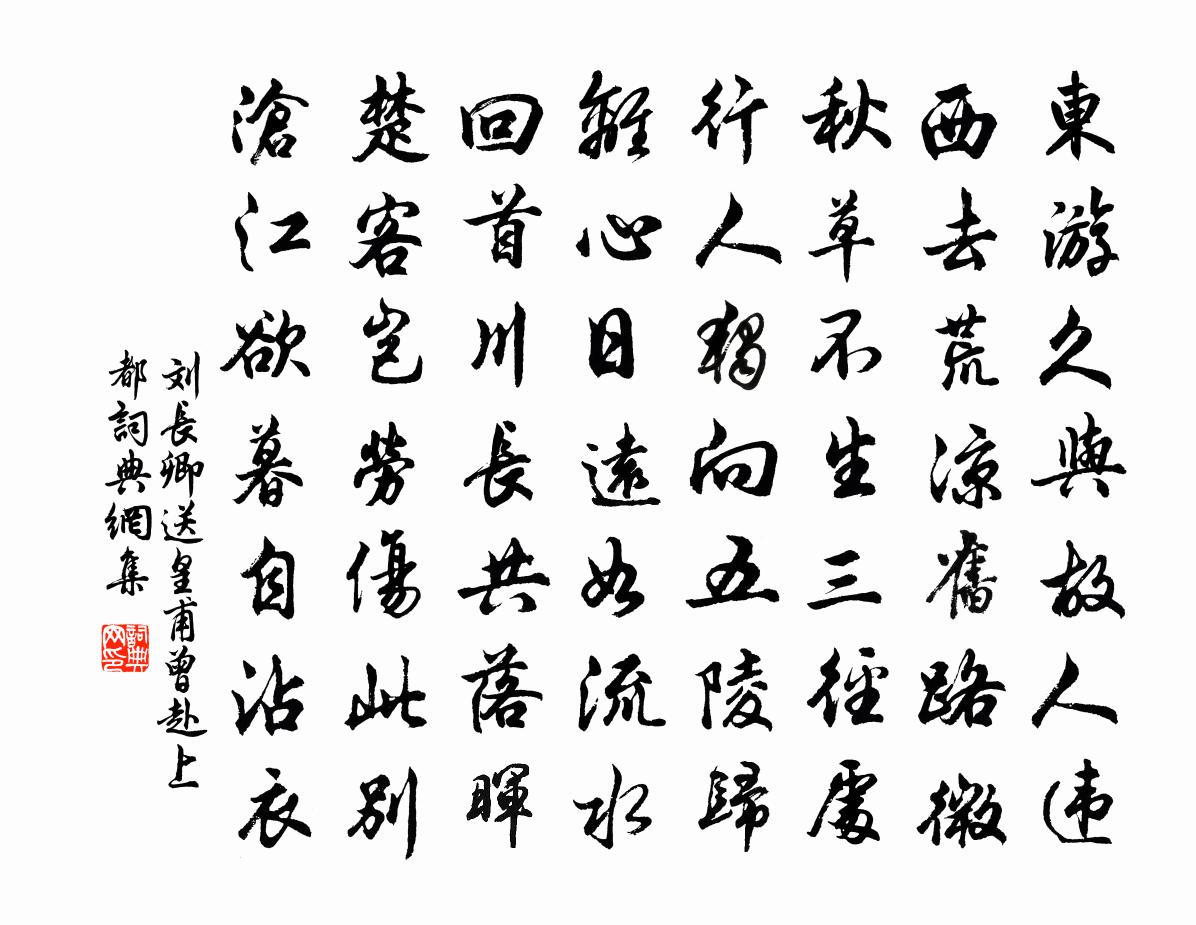 東游久與故人違
西去荒涼舊路微
秋草不生三徑處
行人獨向五陵歸
離心日遠如流水
回首川長共落暉
楚客豈勞傷此別
滄江欲暮自沾衣
刘長卿送皇甫曾赴上
都詞典網集
詞典
网印